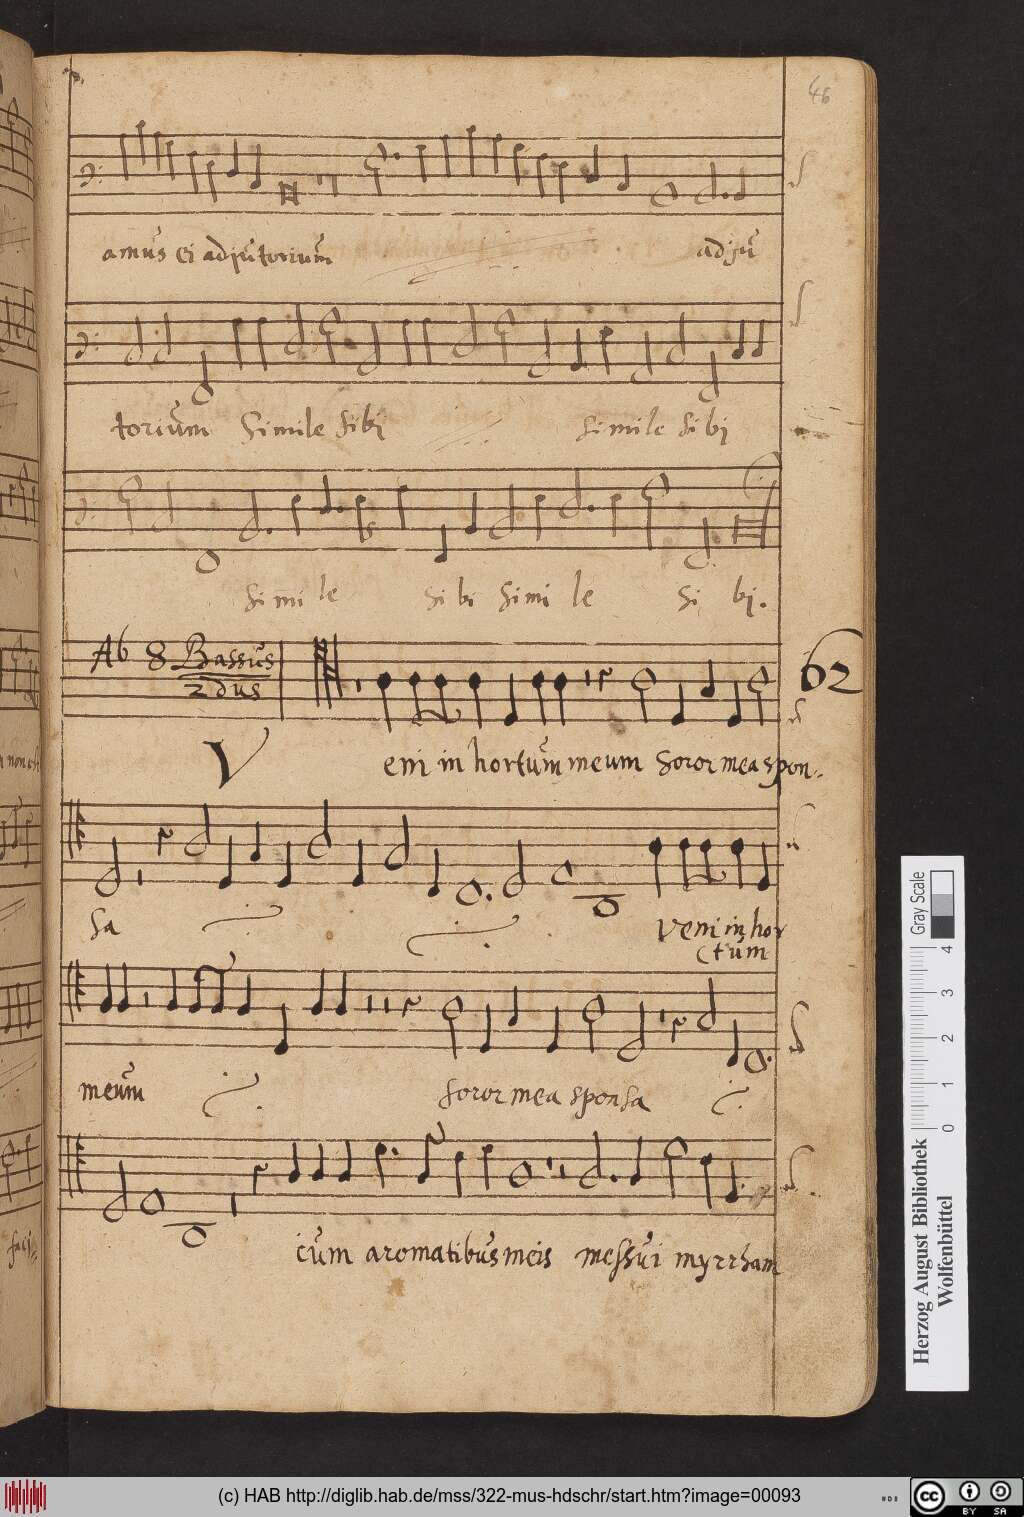 46
amus ei adjutorium adju
torium Simile sibi simile sibi
Simile sibi simile sibi.
Ab 8 Bassus
2dus
62
Veni in hortum meum soror mea spon-
sa Veni in hor
(tum
meum soror mea sponsa
cum aromatibus meis messui myrrham
Gray Scale
0 1 2 3 4
Herzog August Bibliothek
Wolfenbüttel
(c) HAB http://diglib.hab.de/mss/322-mus-hdschr/start.htm?image=00093
cc BY SA